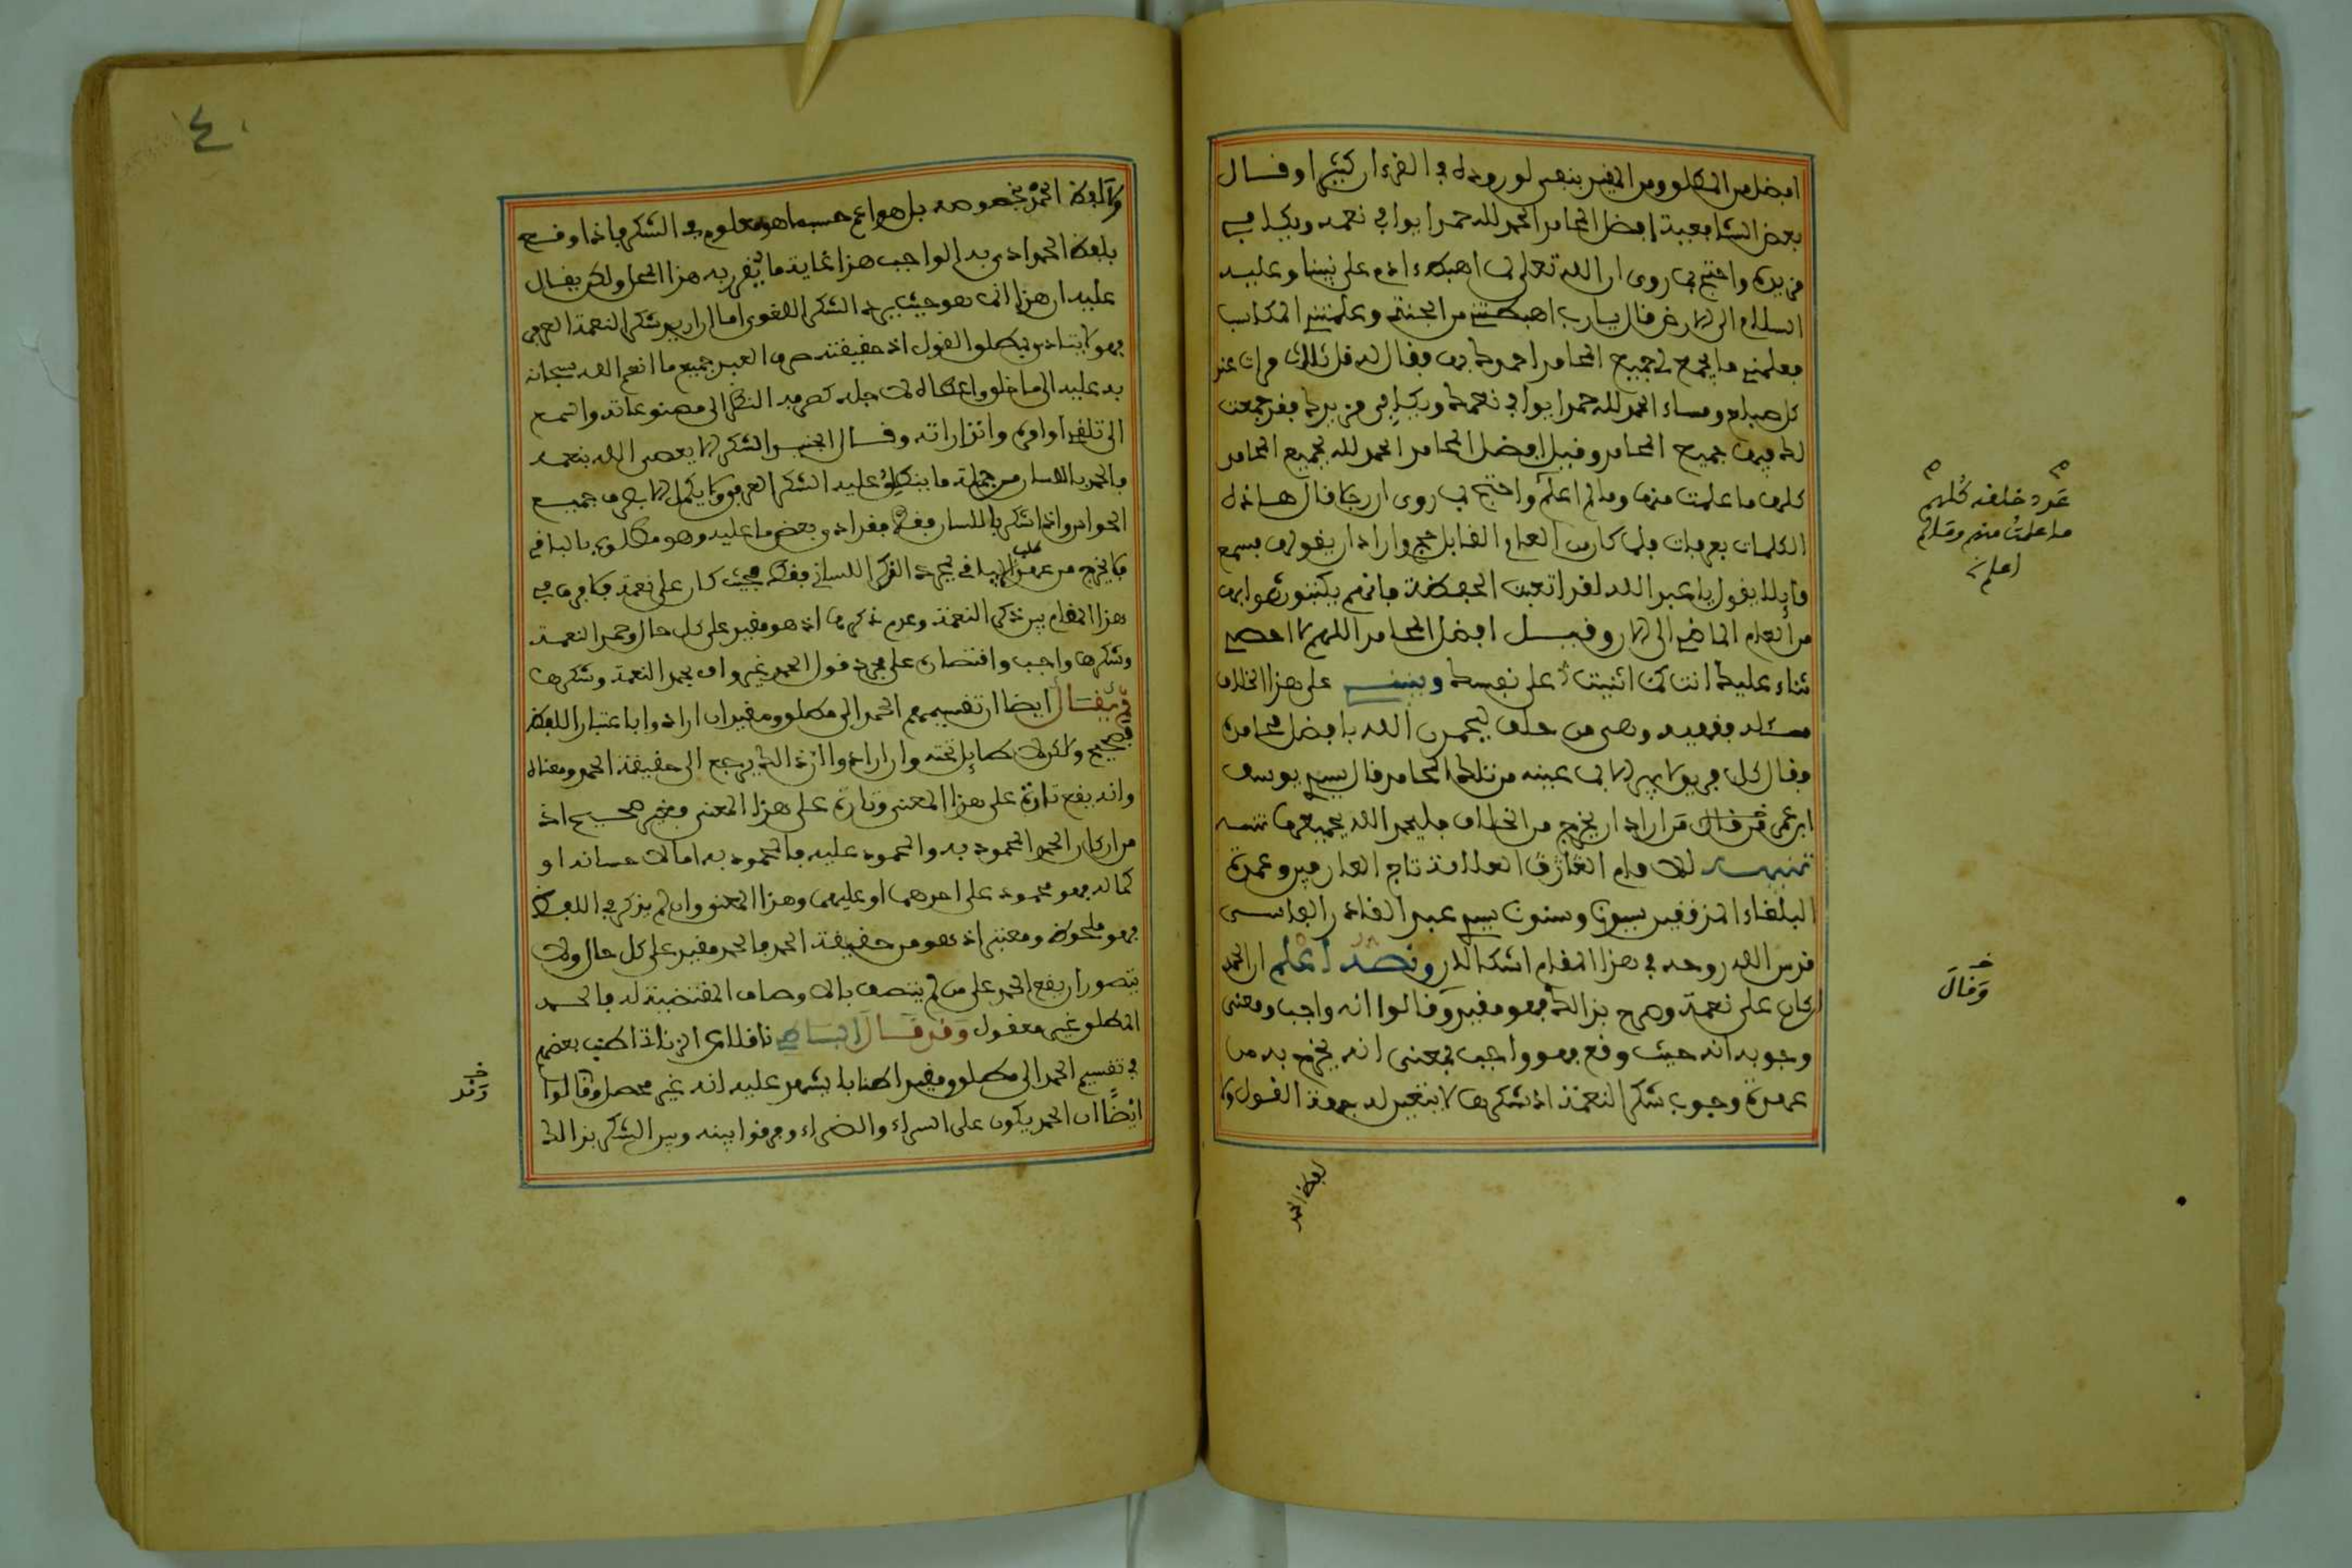 افضل من المطلق ومن المقيد بنفي لوروده في القرءان كثيرا وقال
بعض الشافعية افضل المحامد الحمد لله حمدا يوافي نعمه ويكافي
مزيده واحتج بما روي ان الله تعلى لما اهبط ءادم على نبينا وعليه
السلام الى الارض قال يا رب اهبطتني من الجنة وعلمتني المكاسب
فعلمني ما يجمع لي جميع المحامد احمدك به فقال له قل ثلاث مرات عند
كل صباح ومساء الحمد لله حمدا يوافي نعمك ويكافي مزيدك فقد جمعت
لك فيه جميع المحامد وقيل افضل المحامد الحمد لله بجميع المحامد
كلها ما علمت منها وما لم اعلم واحتج بما روي ان رجلا قال هذه
الكلمات بعرفات فلما كان من العام القابل حج واراد ان يقولها فسمع
قايلا يقول يا عبد الله لقد اتعبت الحفظة فانهم يكتبون ثوابها
من العام الماضي الى الان وقيل افضل المحامد اللهم لا احصي
ثناء عليك انت كما اثنيت على نفسك وينبني على هذا الخلاف
مسئلة فقهية وهي من حلف ليحمدن الله بافضل محامده
فقال كل فريق لا يبر الا بما عينه من تلك المحامد قال سيدي يوسف
ابن عمر فمن اراد ان يخرج من الخلاف فليحمد الله بجميعها
تنبيه للامام العارف العلامة تاج العارفين وعمدة
البلغاء المدققين سيدنا وسندنا سيدي عبد القادر الفاسي
قدس الله روحه في هذا المقام اشكال ونصه اعلم ان الحمد
ان كان على نعمة وصرح بذلك فهو مقيد وقالوا انه واجب ومعنى
وجوبه انه حيث وقع فهو واجب بمعنى انه يخرج به من
عهدة وجوب شكر النعمة اذ شكرها لا يتعين له جهة القول ولا
لفظ الحمد
عدد خلقه كلهم
ما علمت منهم وما لم
اعلم
وقال
ولا لفظ الحمد بخصوصه بل هو اعم حسبما هو معلوم في الشكر فاذا وقع
بلفظ الحمد ادى به الواجب هذا غاية ما يقرر به هذا المحل ولكن يقال
عليه ان هذا انما هو حيث يراد الشكر اللغوي اما ان اريد شكر النعمة العرفي
فهو لا يتادى بمطلق القول اذ حقيقته صرف العبد جميع ما انعم الله سبحانه
به عليه الى ما خلق واعطاه لاجله كصرفه النظر الى مصنوعاته والسمع
الى تلقي اوامره وانذاراته وقال الجنيد الشكر الا يعصى الله بنعمه
فالحمد باللسان من جملة ما ينطلق عليه الشكر العرفي ولا يكمل الا بصرف جميع
الجوارح واذا شكر باللسان فقط فقد ادى بعض ما عليه وهو مطلوب بالباقي
فلا يخرج من عهدة طلب الباقي بمجرد الذكر اللساني فقط حيث كان على نعمة فلا فرق في
هذا المقام بين ذكر النعمة وعدم ذكرها اذ هو مقيد على كل حال وحمد النعمة
وشكرها واجب واقتصاره على مجرد قول الحمد غير واف بحمد النعمة وشكرها
ثم يقال ايضا ان تقسيمهم الحمد الى مطلق ومقيد ان ارادوا باعتبار اللفظ
فصحيح ولكن لا طايل تحته وان ارادوا ان ذلك يرجع الى حقيقة الحمد ومعناه
وانه يقع تارة على هذا المعنى وتارة على هذا المعنى فغير صحيح اذ
من اركان الحمد المحمود به والمحمود عليه فالمحمود به اما احسانه او
كماله فهو محمود على احدهما او عليهما وهذا المعنى وان لم يذكر في اللفظ
فهو ملحوظ ومعتبر اذ هو من حقيقة الحمد فالحمد مقيد على كل حال ولا
يتصور ان يقع الحمد على من لم يتصف بالاوصاف المقتضية له فالحمد
المطلق غير معقول وقد قال البساطي ناقلا عن الزناتي اطنب بعضهم
في تقسيم الحمد الى مطلق ومقيد اطنابا يشهد عليه انه غير محصل وقالوا
ايضًا ان الحمد يكون على السراء والضراء وفرقوا بينه وبين الشكر بذلك
وقد
٤٠